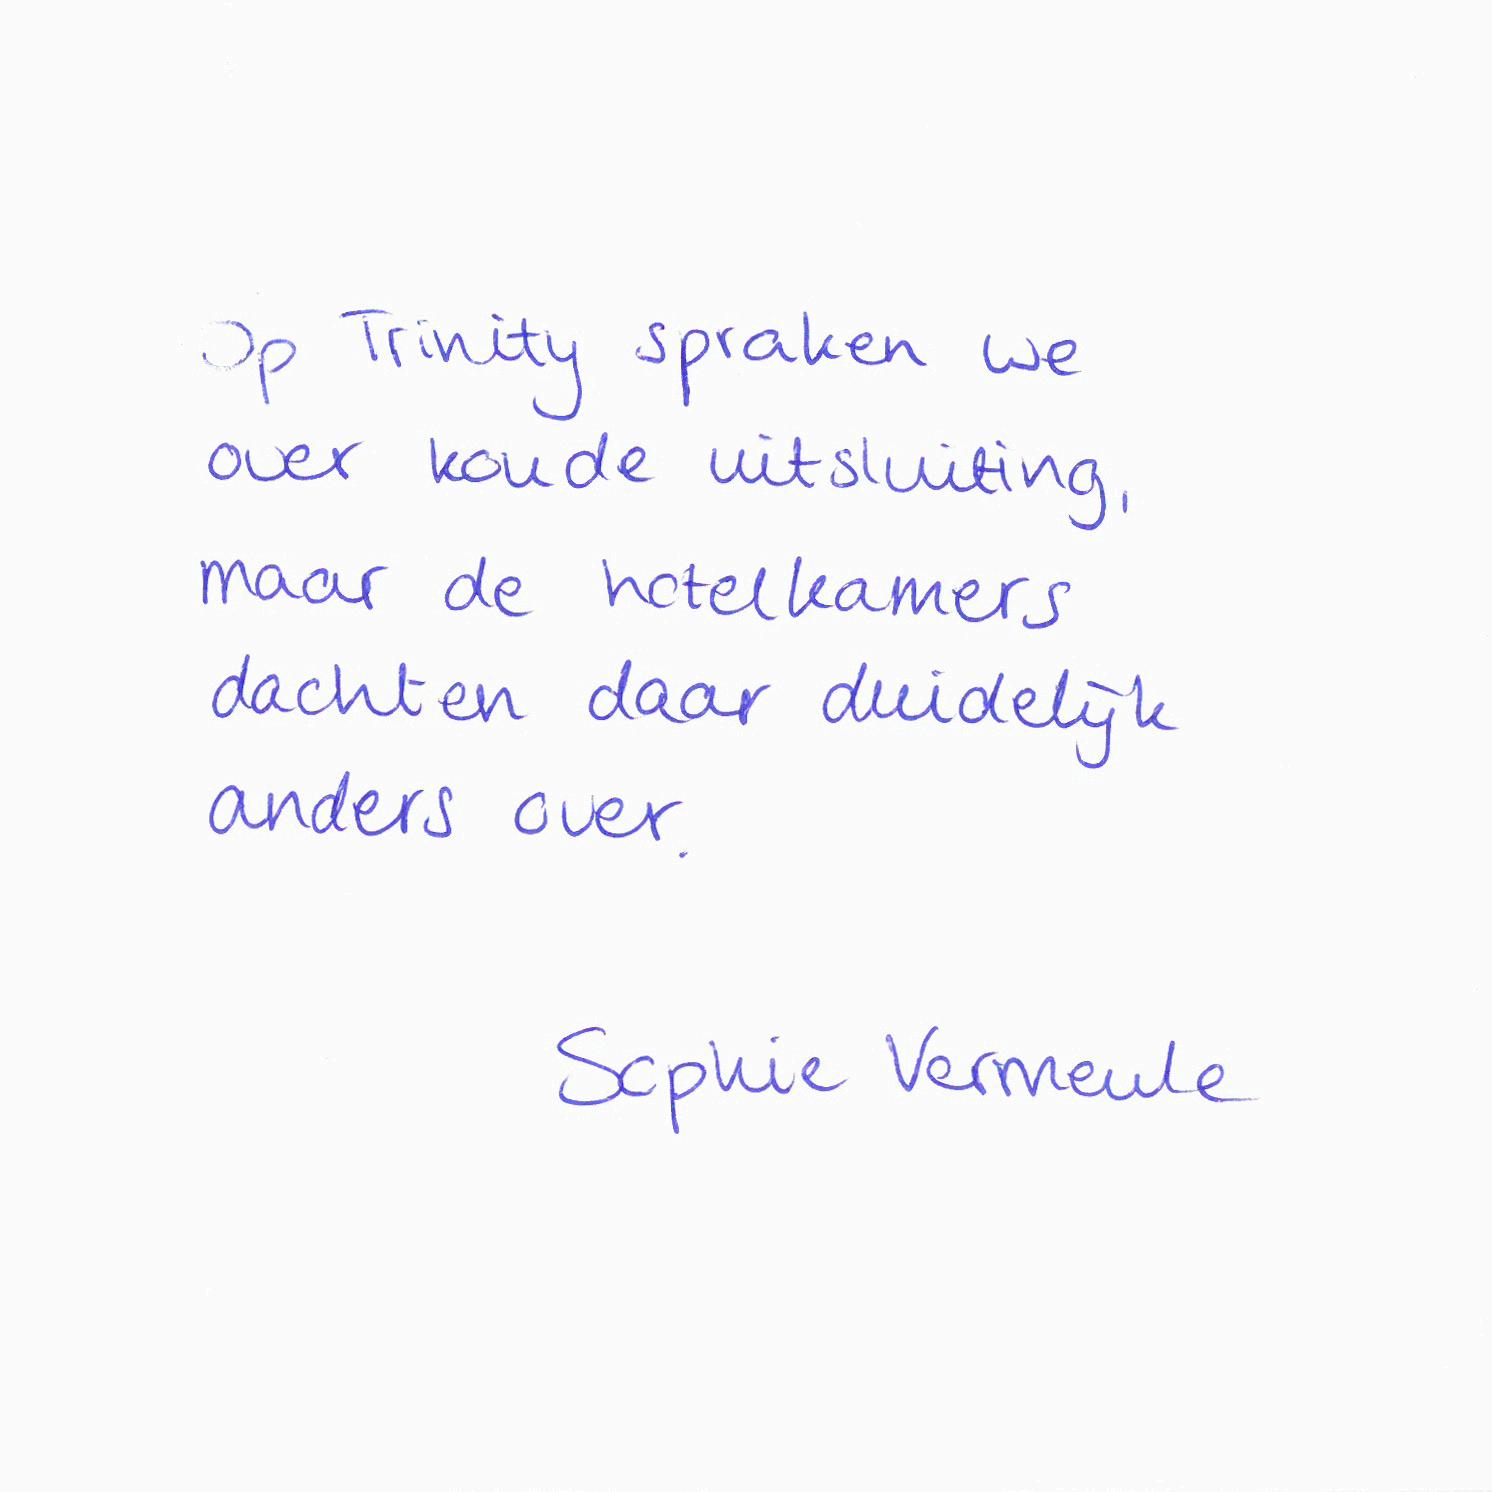 Op Trinity spraken we
over koude uitsluiting,
maar de hotelkamers
dachten daar duidelijk
anders over.
Sophie Vermeule